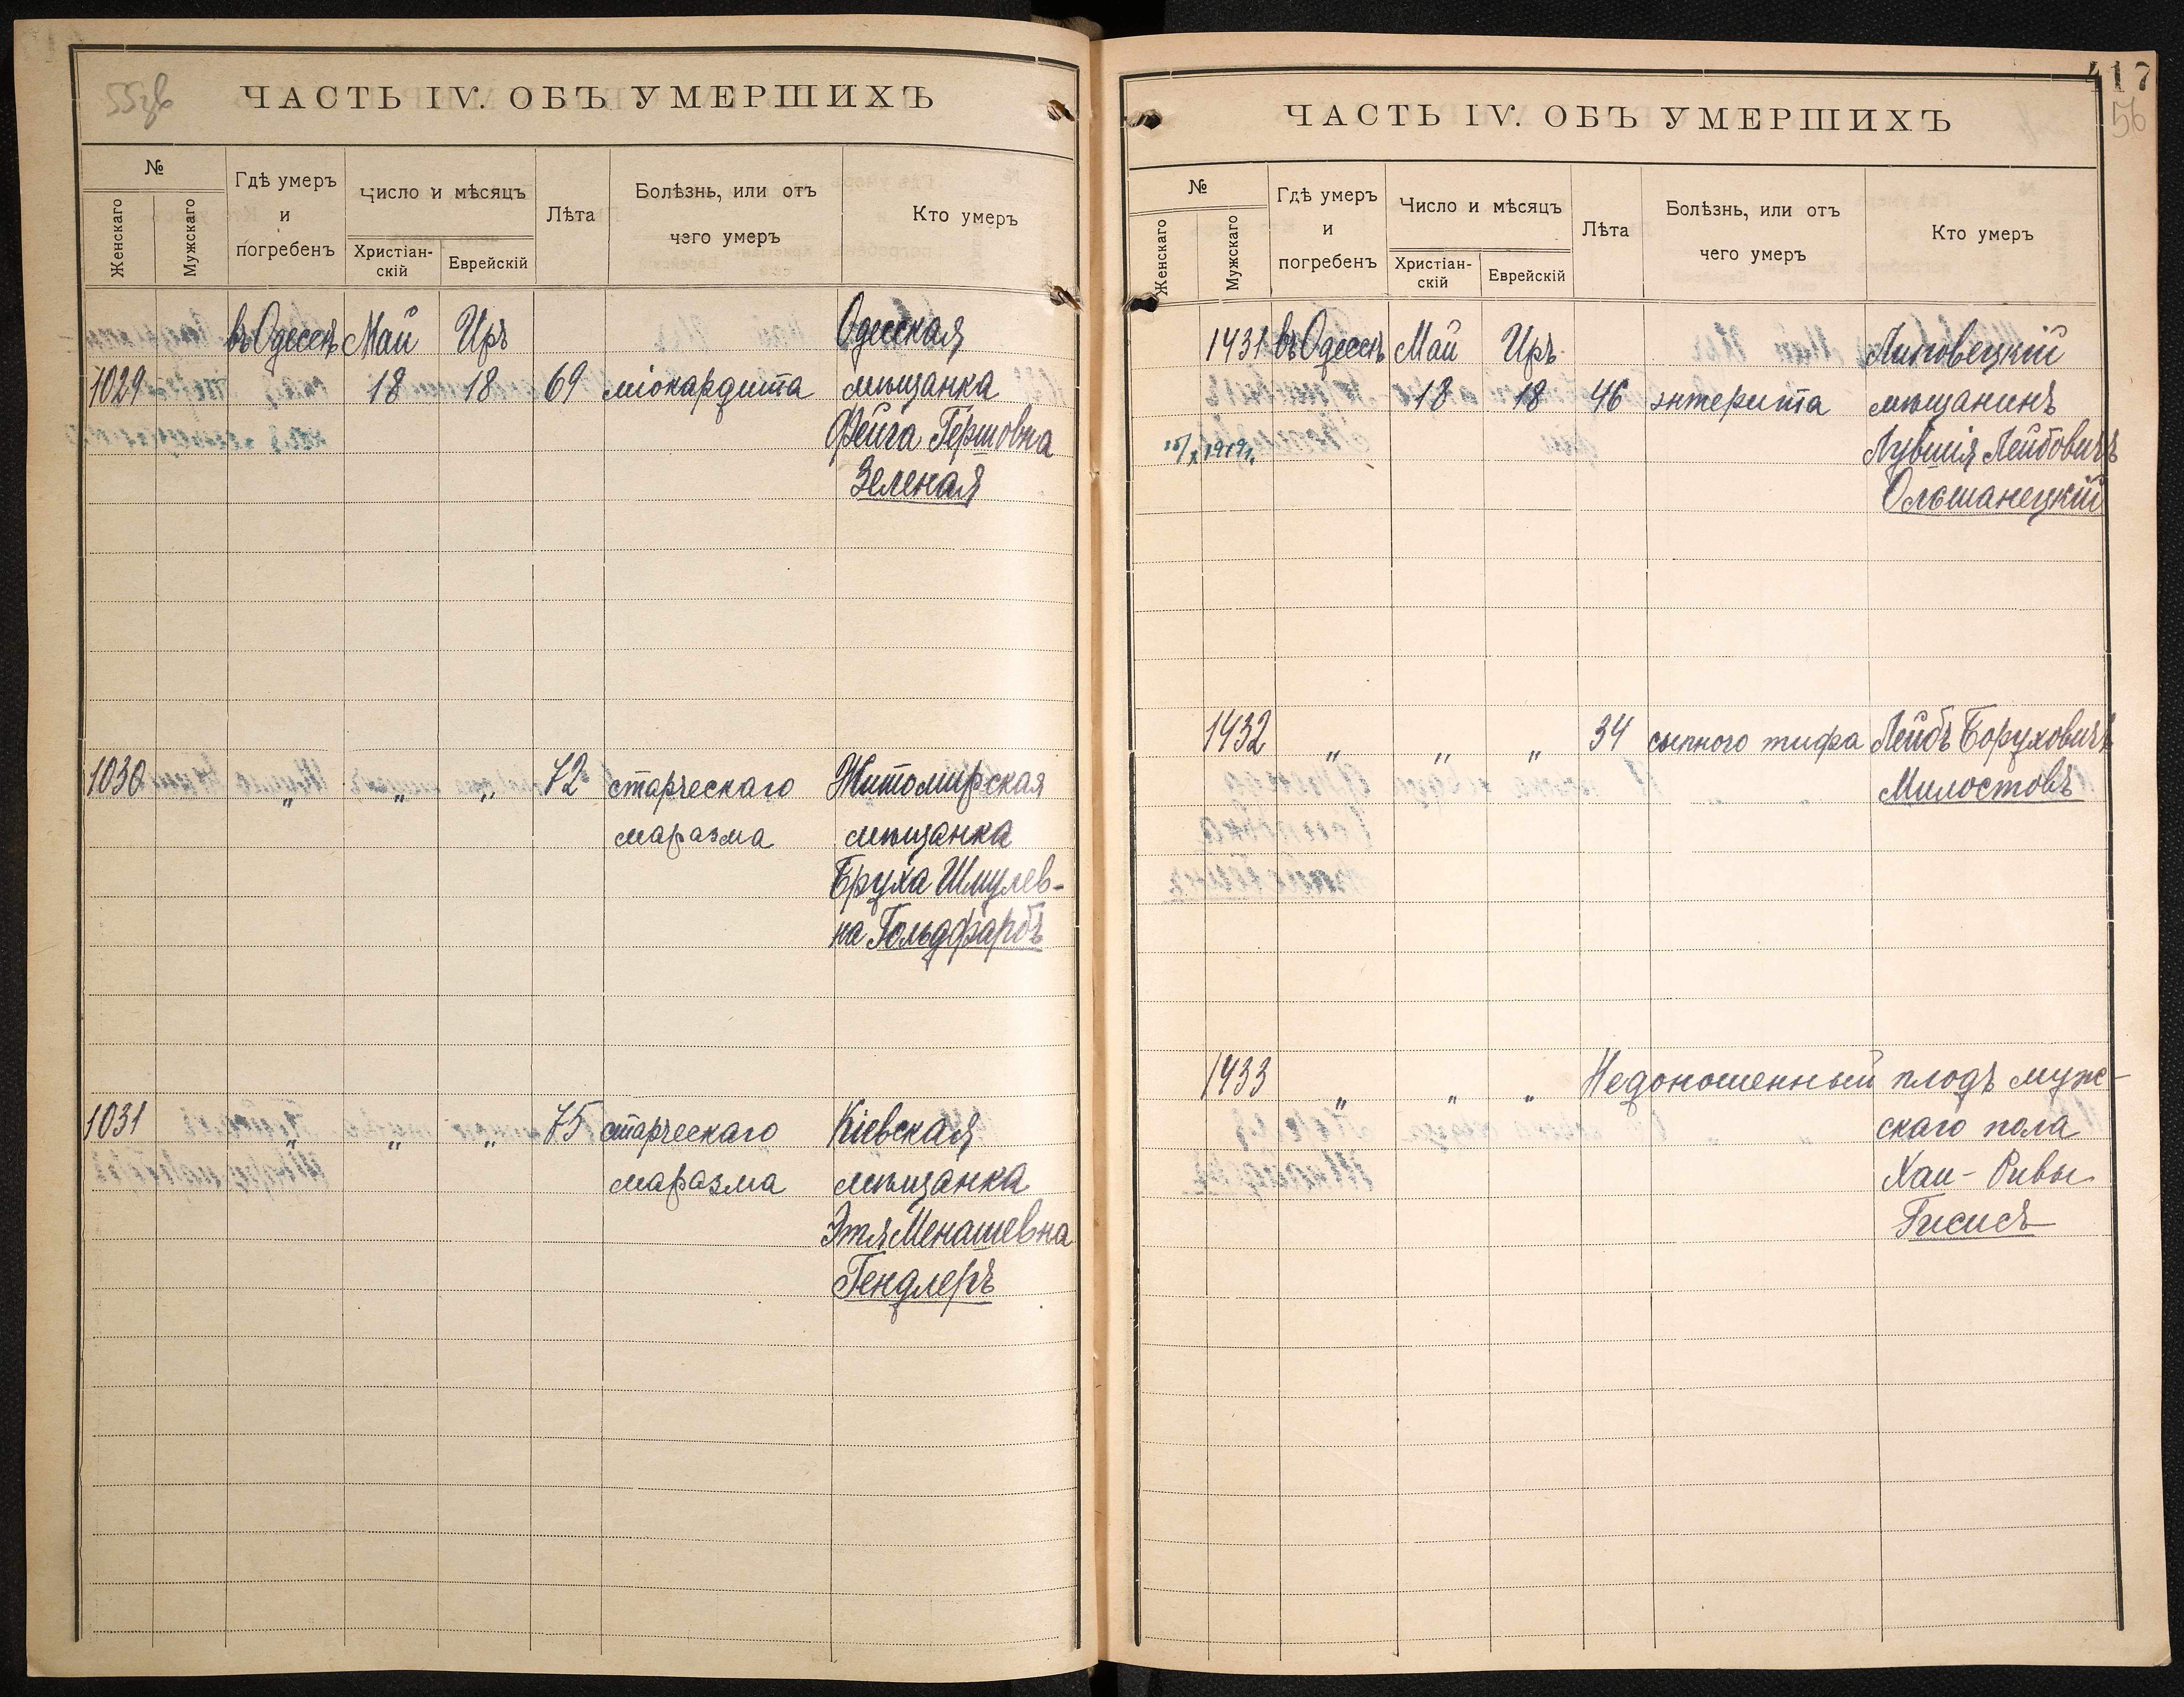 55зв
ЧАСТЬ IV. ОБЪ УМЕРШИХЪ
№
Женскаго
Мужскаго
Гдѣ умеръ
и
погребенъ
Число и мѣсяцъ
Христіан-
скій
Еврейскій
Лѣта
Болѣзнь, или отъ
чего умеръ
Кто умеръ
въ Одессѣ Май Иръ Одесская
1029 18 18 69 міокардита мѣщанка
Фейга Гершовна
Зеленая
1030 „ „ „ 72 старческаго Житомирская
маразма мѣщанка
Бруха Шмулев-
на Гольдфарбъ
1031 „ „ „ 75 старческаго Кіевская
маразма мѣщанка
Этя Менашевна
Гендлеръ
417
56
ЧАСТЬ IV. ОБЪ УМЕРШИХЪ
№
Женскаго
Мужскаго
Гдѣ умеръ
и
погребенъ
Число и мѣсяцъ
Христіан-
скій
Еврейскій
Лѣта
Болѣзнь, или отъ
чего умеръ
Кто умеръ
1431 въ Одессѣ Май Иръ Липовецкій
18 18 46 энтерита мѣщанинъ
1919г. Лейбовичъ
Ольшанецкій
1432 „ „ „ 34 сыпного тифа Лейбъ Боруховичъ
Милостовъ
1433 „ „ „ Недоношенный плодъ муж-
скаго пола
Хаи-Ривы
Гисисъ